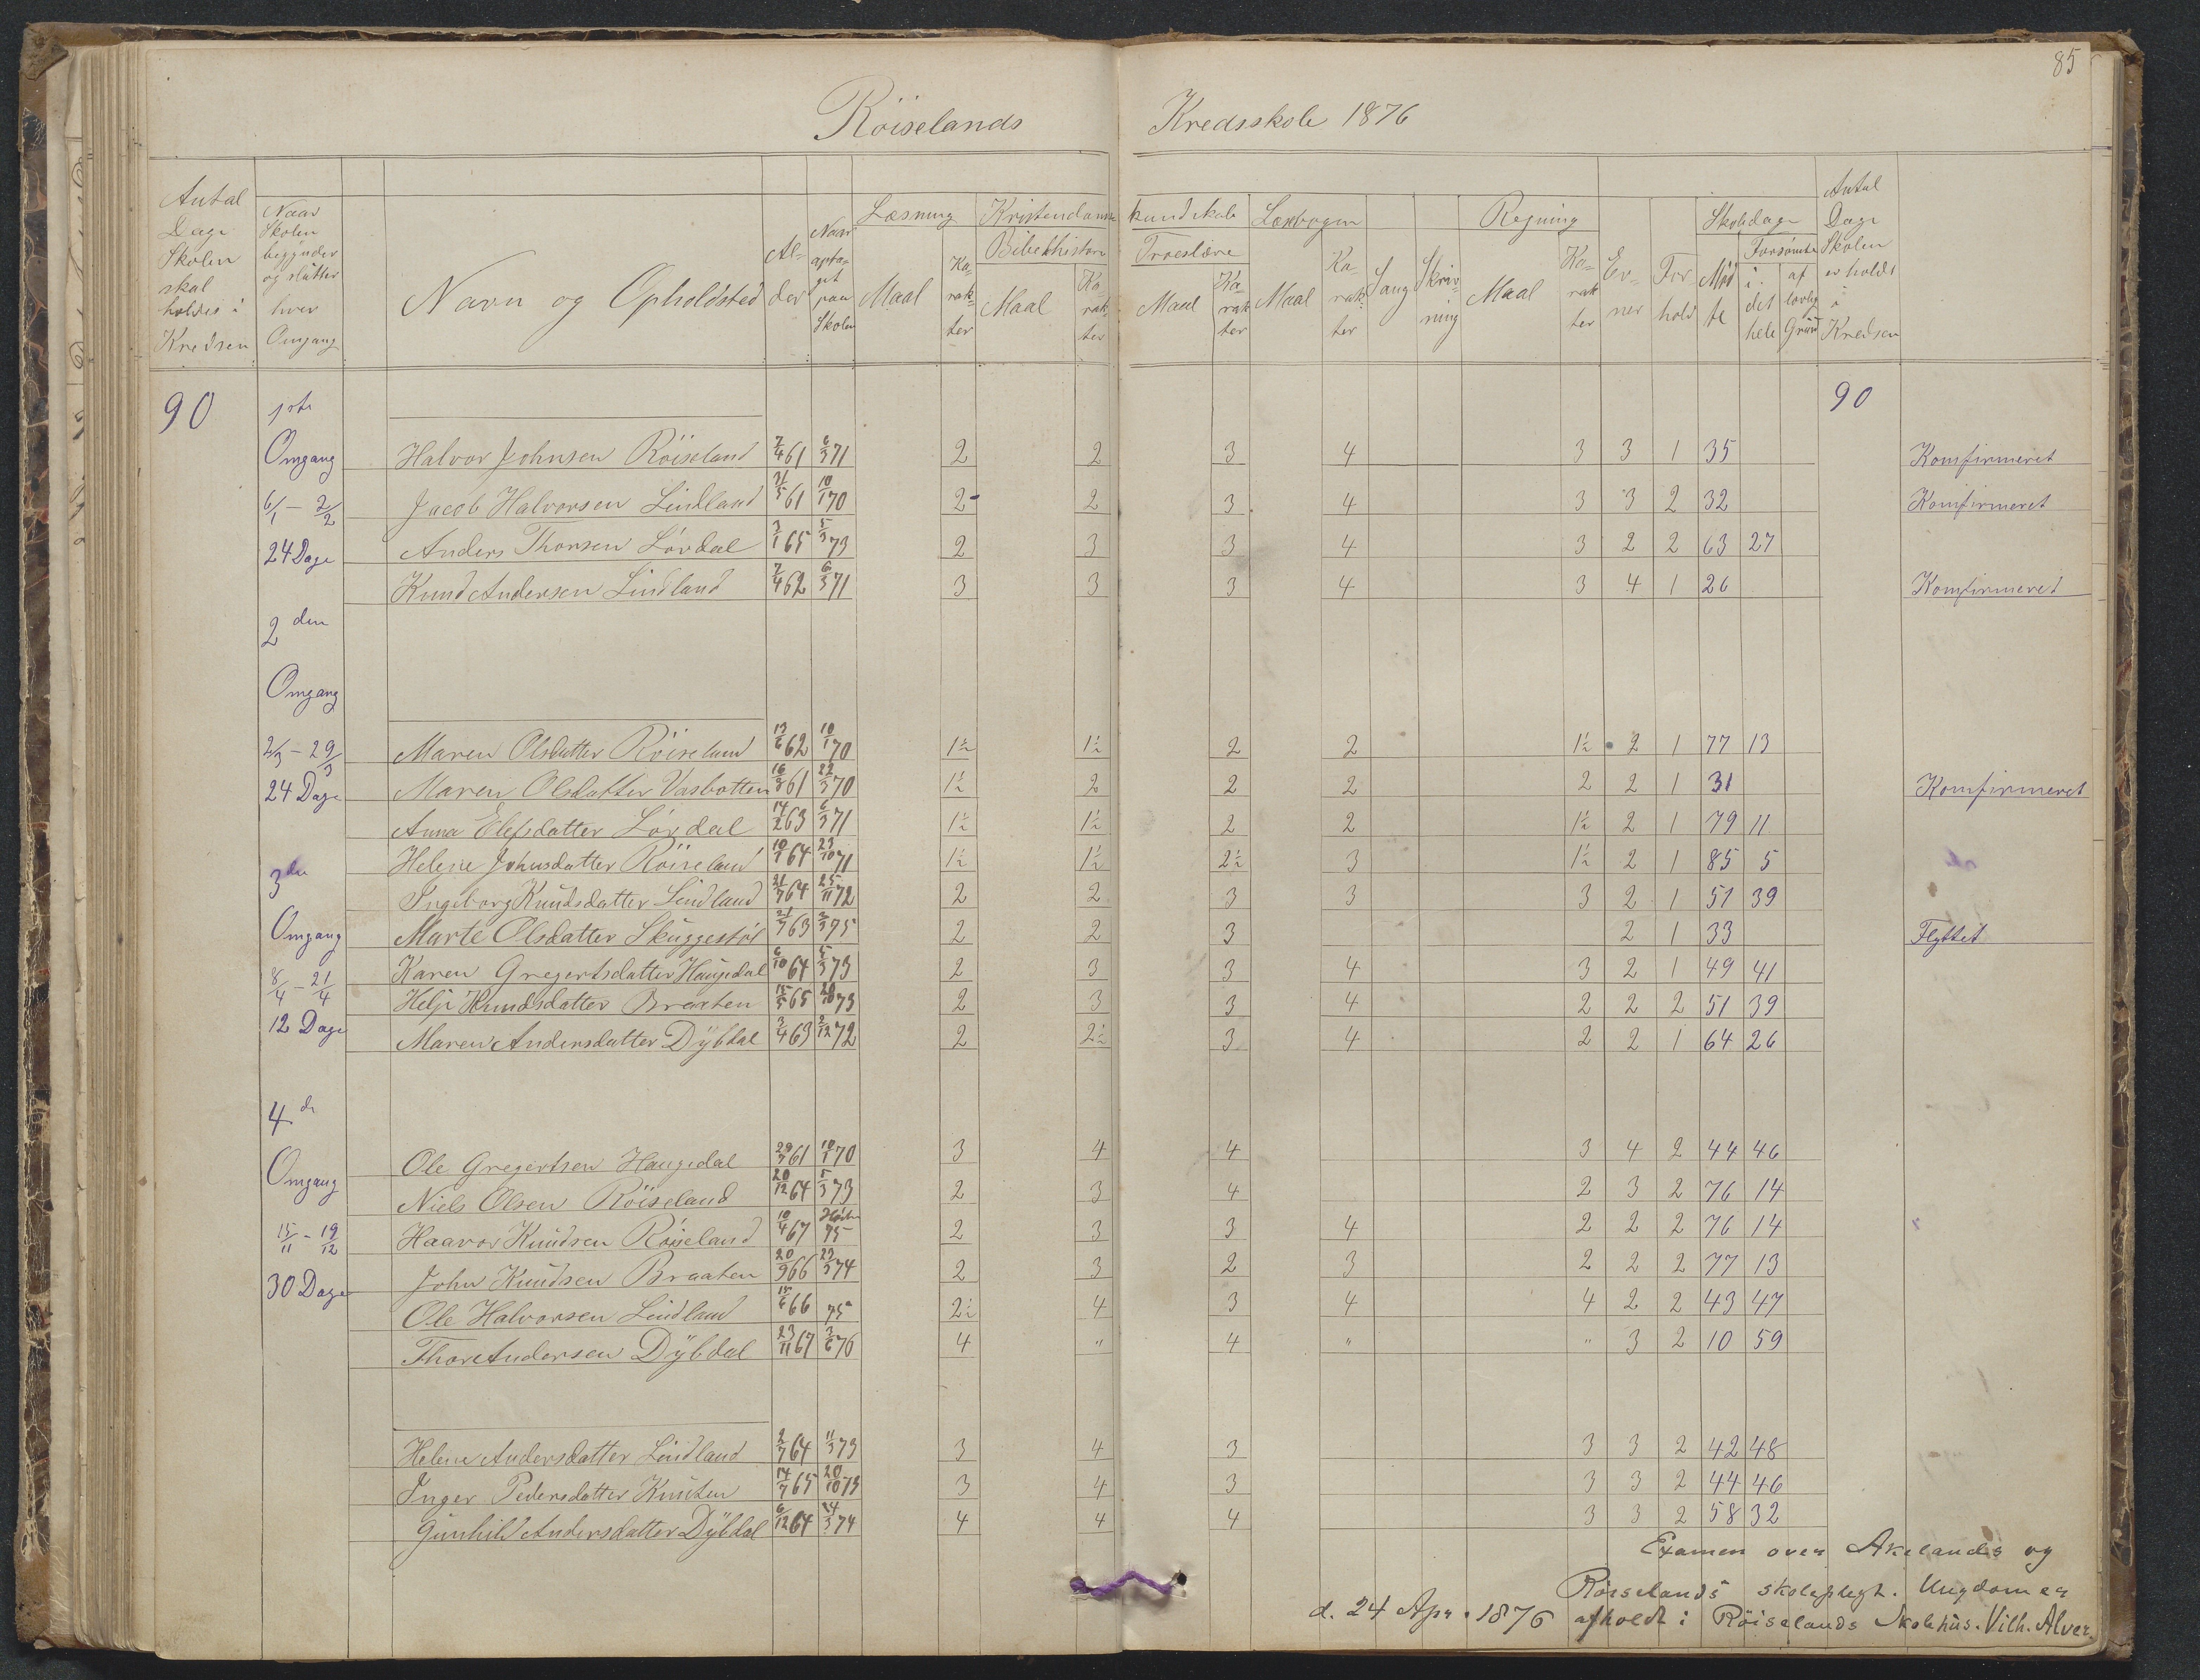 85
Röiselands Kredsskole 1876
Antal Dage Skolen skal holdes i Kredsen
Naar Skolen begynder og slutter hver Omgang
Navn og Opholdsted
Alder
Naar optaget paa Skolen
Læsning Maal Karakter
Kristendomskundskab
Bibelhistorie Maal Karakter
Troeslære Maal Karakter
Læsebogen Maal Karakter
Sang
Skrivning
Regning Maal Karakter
Evner
Forhold
Skoledage Mödte
Forsömte i det hele af lovlig Grund
Antal Dage Skolen er holdt i Kredsen
90 1ste 90
Omgang Halvor Johnsen Röiseland 7/4 61 6/3 71 2 2 3 4 3 3 1 35 Komfirmeret
6/1 - 2/2 Jacob Halvorsen Lindland 21/5 61 10/1 70 2 2 3 4 3 3 2 32 Komfirmeret
24 Dage Anders Thorsen Lördal 3/1 65 5/3 73 2 3 3 4 3 2 2 63 27
Knud Andersen Lindland 7/4 62 6/3 71 3 3 3 4 3 4 1 26 Komfirmeret
2den
Omgang
2/3 - 29/3 Maren Olsdatter Röiseland 13/6 62 10/1 70 1½ 1½ 2 2 1½ 2 1 77 13
24 Dage Maren Olsdatter Vasbotten 16/8 61 22/3 70 1½ 2 2 2 2 2 1 31 Komfirmeret
Anna Elefsdatter Lördal 14/2 63 6/3 71 1½ 1½ 2 2 1½ 2 1 79 11
3die Helene Johnsdatter Röiseland 10/1 64 23/10 71 1½ 1½ 2½ 3 1½ 2 1 85 5
Ingeborg Knudsdatter Lindland 21/7 64 25/11 72 2 2 3 3 3 2 1 51 39
Omgang Marte Olsdatter Skuggestöl 21/7 63 3/3 75 2 2 3 2 1 33 Flyttet
8/4 - 21/4 Karen Gregertsdatter Haugedal 6/10 64 5/3 73 2 3 3 4 3 2 1 49 41
12 Dage Helje Knudsdatter Braaten 15/5 65 20/10 73 2 3 3 4 2 2 2 51 39
Maren Andersdatter Dÿbdal 3/4 63 2/12 72 2 2½ 3 4 2 2 1 64 26
4de
Omgang Ole Gregertsen Haugedal 29/7 61 10/1 70 3 4 4 3 4 2 44 46
Niels Olsen Röiseland 20/12 64 5/3 73 2 3 4 2 3 2 76 14
15/11 - 19/12 Haavor Knudsen Röiseland 10/4 67 75 2 3 3 4 2 2 2 76 14
30 Dage John Knudsen Braaten 20/9 66 23/3 74 2 3 2 3 2 2 2 77 13
Ole Halvorsen Lindland 15/6 66 75 2½ 4 3 4 4 2 2 43 47
Thore Andersen Dÿbdal 23/11 67 3/6 76 4 " 4 " " 3 2 10 59
Helene Andersdatter Lindland 2/7 64 11/3 73 3 4 3 3 3 2 42 48
Inger Pedersdatter Knuten 14/7 65 20/10 73 3 4 3 3 3 2 44 46
Gunhild Andersdatter Dÿbdal 6/12 64 24/3 74 4 4 4 3 3 2 58 32
Examen over Akelands og
Röiselands skolepligt. Ungdom er
d. 24 Apr. 1876 afholdt i Röiselands Skolehus. Vilh. Alver.